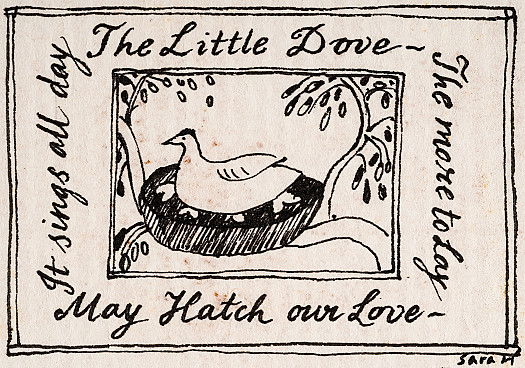 The Little Dove ~
The more to Lay
May Hatch our Love ~
It sings all day
sara n